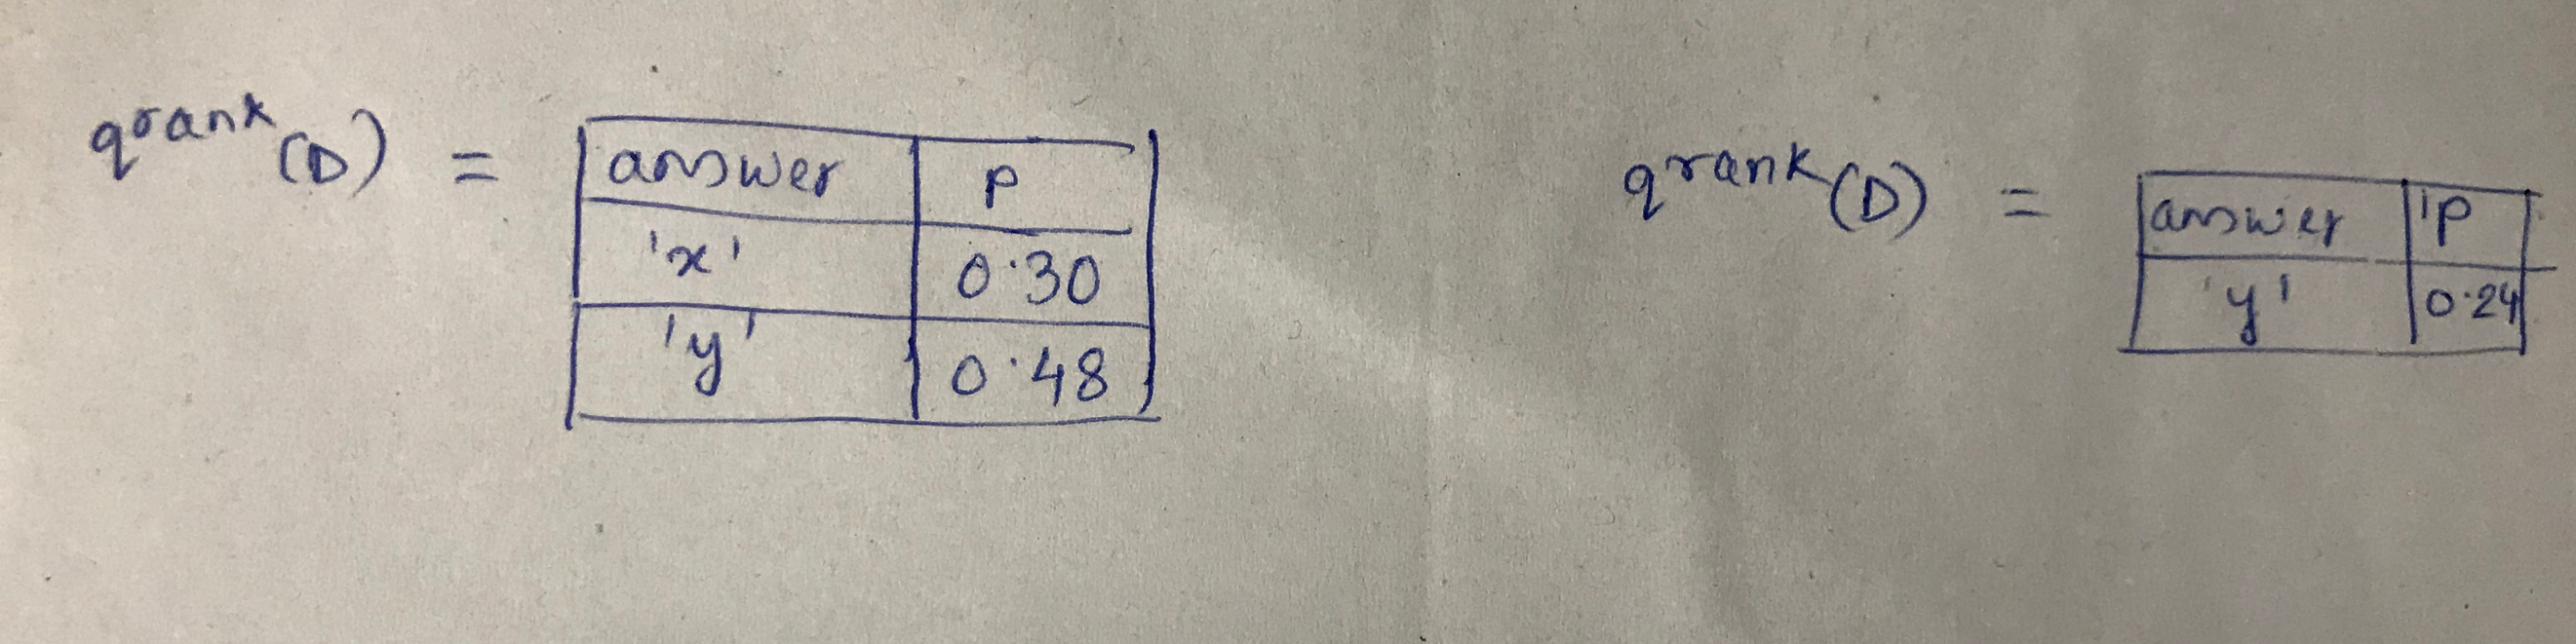 qrank(D) = answer P
'x' 0.30
'y' 0.48
qrank(D) = answer P
'y' 0.24